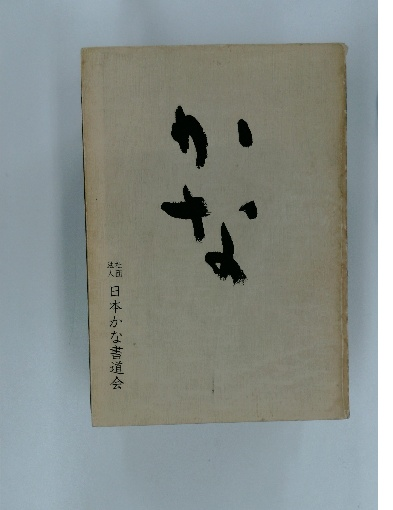 かな
社団法人 日本かな書道会